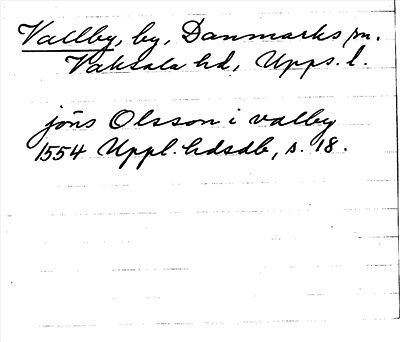 Vallby, by, Danmarks sn.
Vaksala hd, Upps. l.
jöns Olsson i valby
1554 Uppl. hdsdb, s. 18.